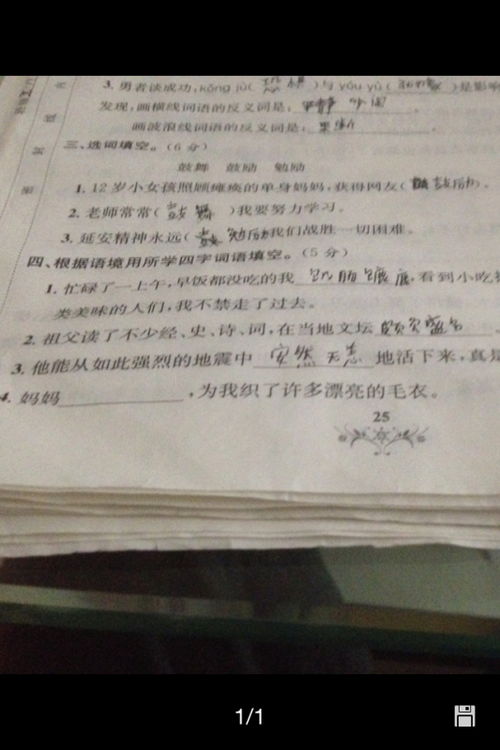 3. 勇者谈成功,kǒng jù( 恐惧 )与 yóu yù( 犹豫 )是影
发现,画横线词语的反义词是: 平静
画波浪线词语的反义词是: 果断
三、选词填空。(6分)
鼓舞 鼓励 勉励
1. 12岁小女孩照顾瘫痪的单身妈妈,获得网友( 鼓励 )。
2. 老师常常( 鼓舞 )我要努力学习。
3. 延安精神永远( 勉励 我们战胜一切困难。
四、根据语境用所学四字词语填空。(5分)
1. 忙碌了一上午,早饭都没吃的我 饥肠辘辘,看到小吃
类美味的人们,我不禁走了过去。
2. 祖父读了不少经、史、诗、词,在当地文坛 颇负盛名
3. 他能从如此强烈的地震中 安然无恙 地活下来,真是
4. 妈妈____________,为我织了许多漂亮的毛衣。
25
1/1